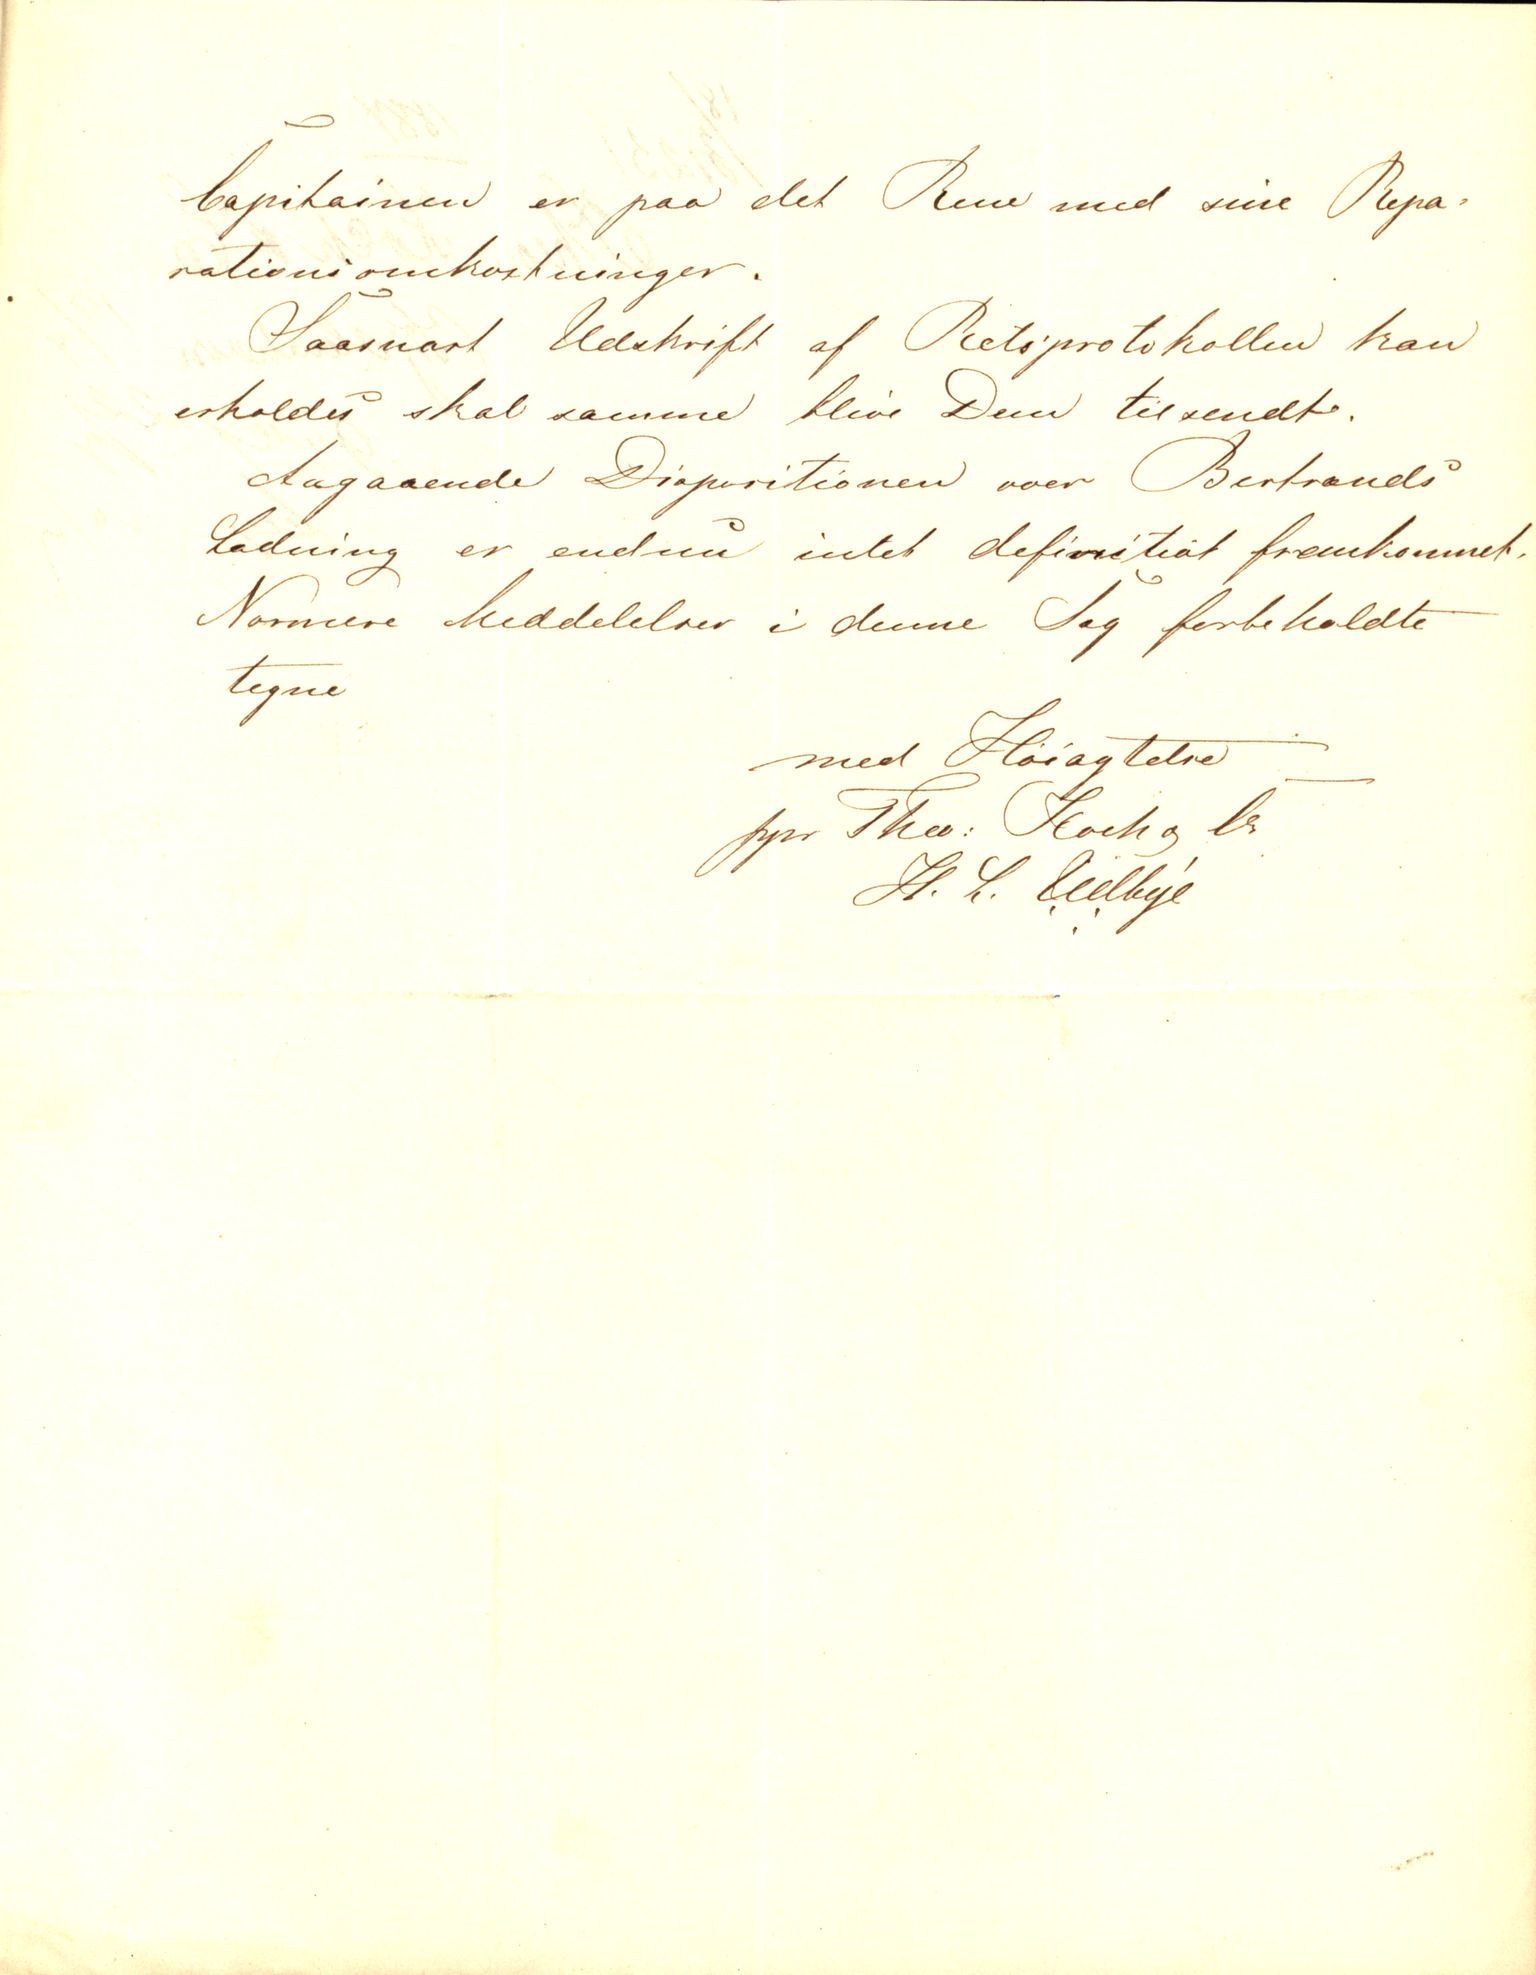 Capitainen er paa det Rene med sine Repa-
rationsomkostninger.
Saasnart Udskrift af Retsprotokollen kan
erholdes skal samme blive Dem tilsendt.
Angaaende Dispositionen over Bertrands
Ladning er endnu intet definitivt fremkommet.
Nærmere Meddelelser i denne Sag forbeholdte
tegne
med Høiagtelse
ppr Theo: Koch & Co
H. L. Udbye